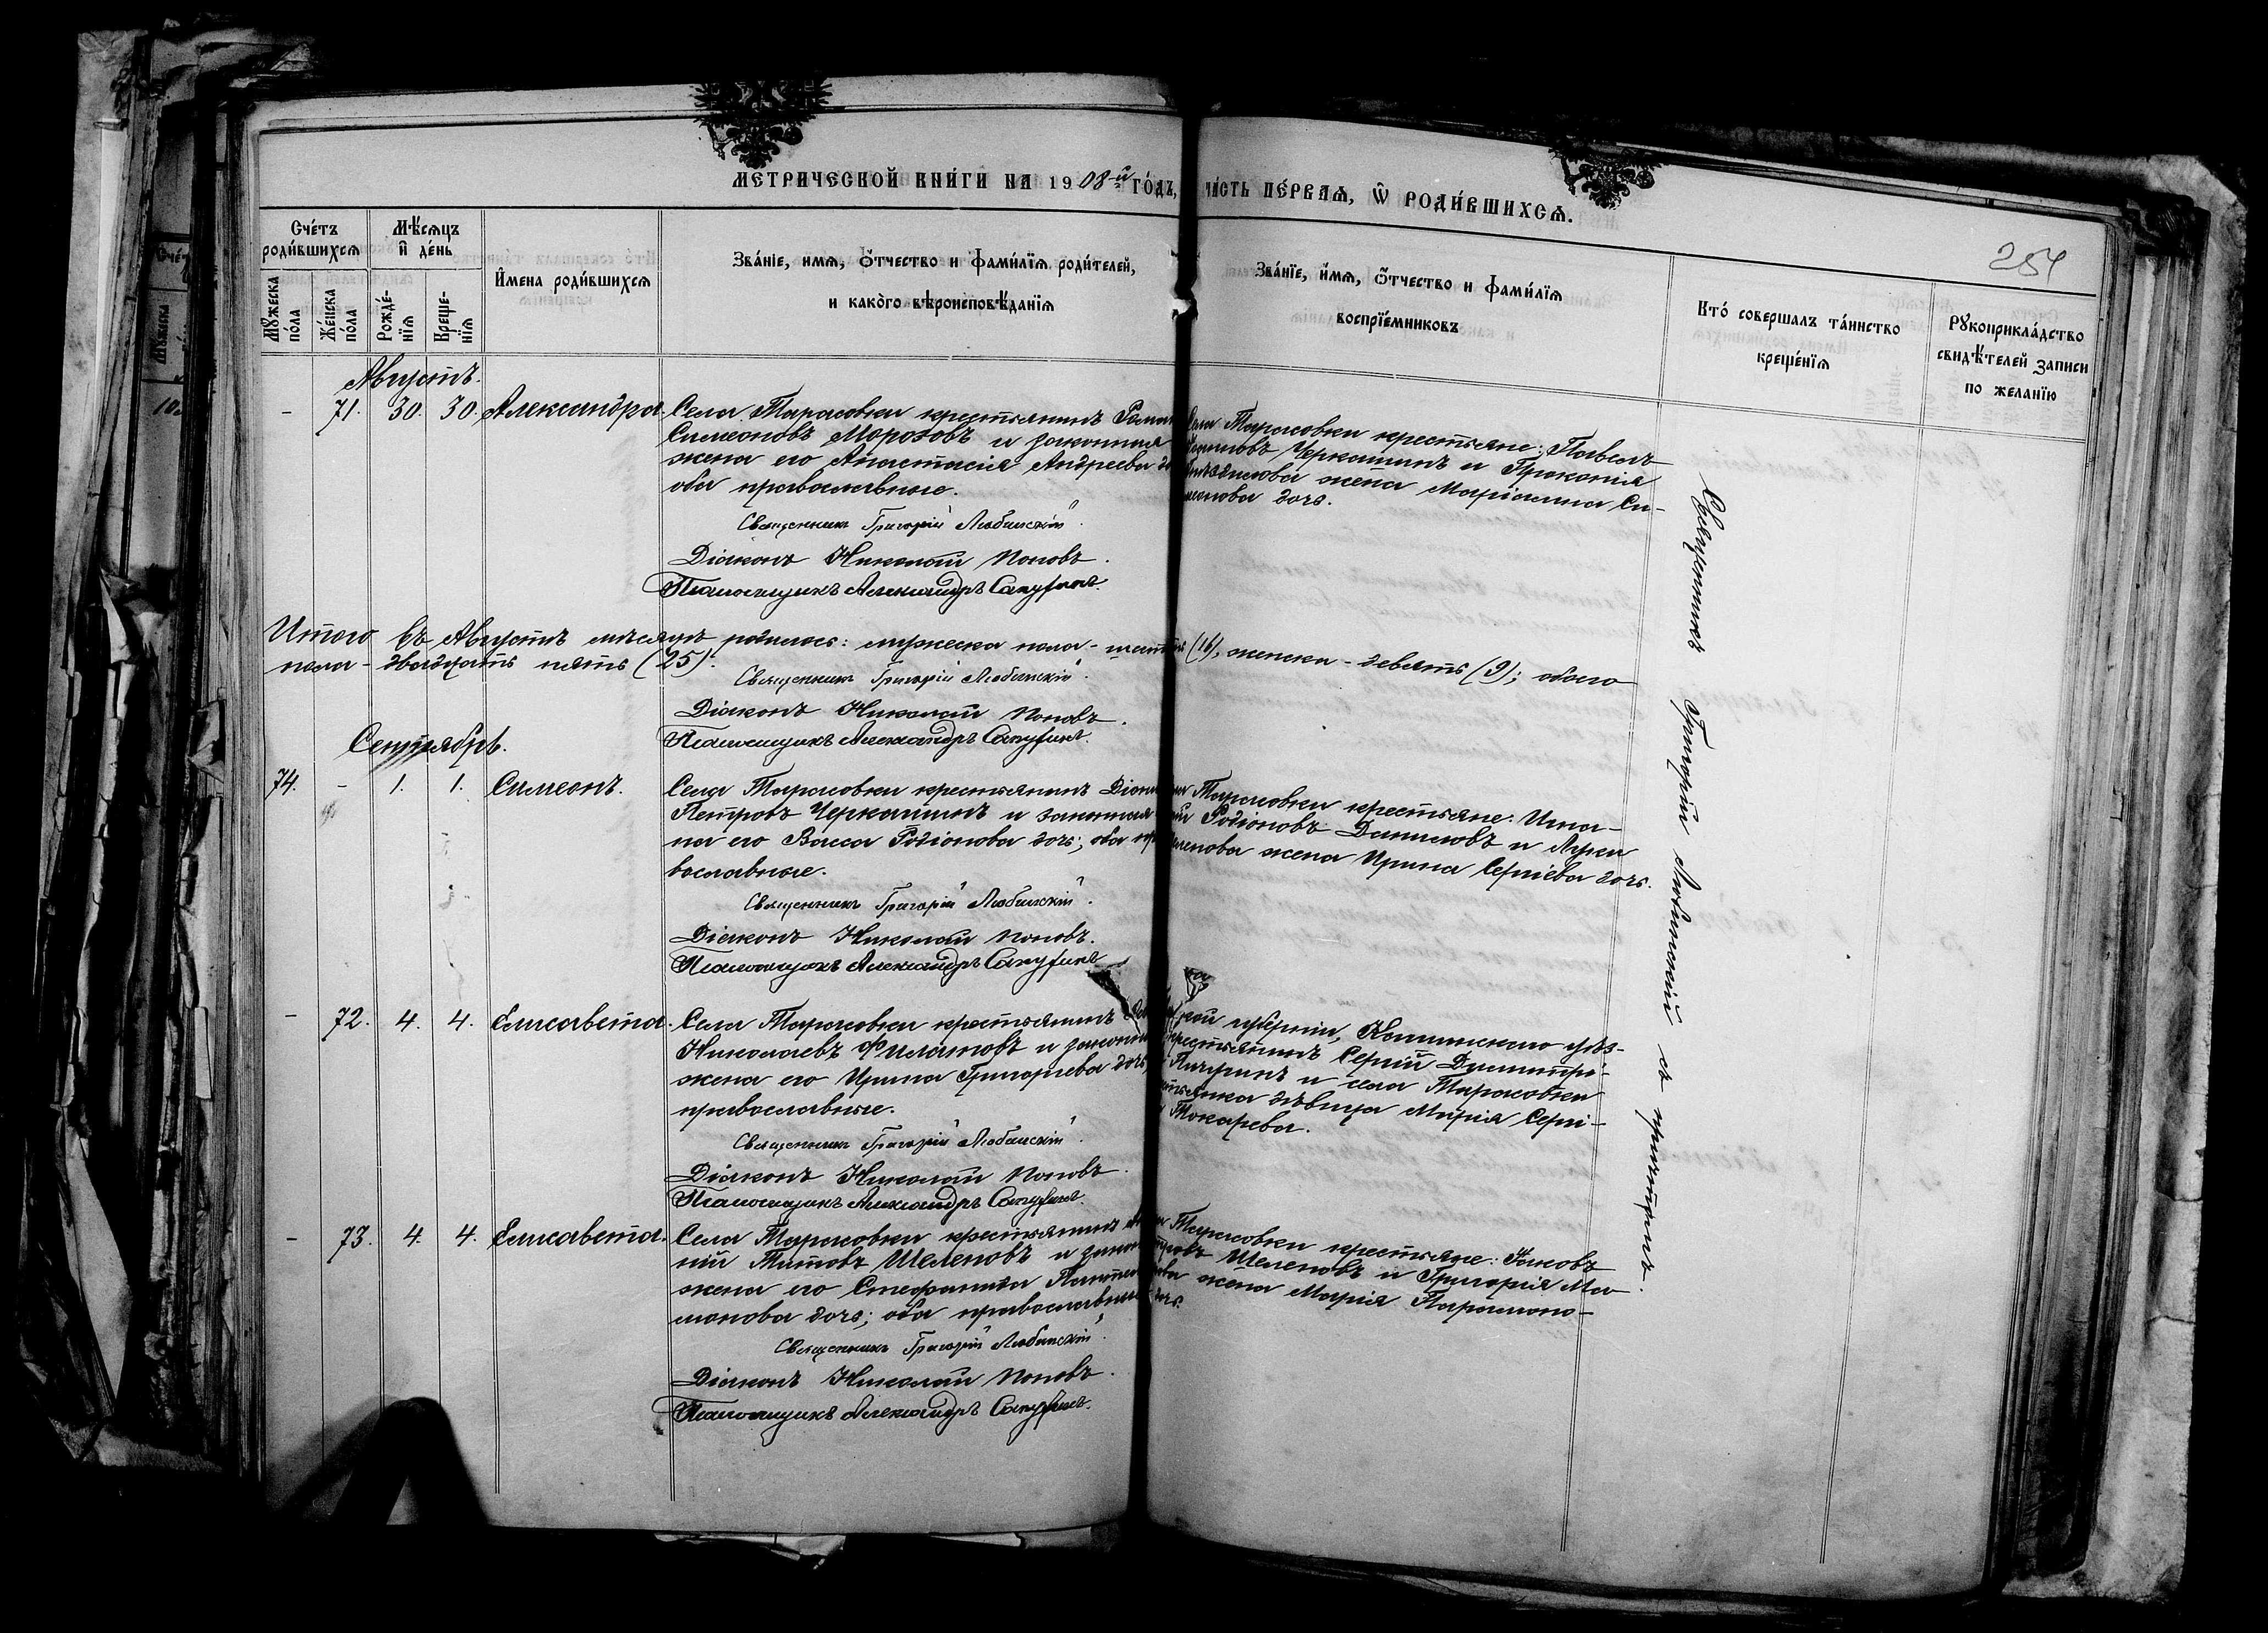 МЕТРИЧЕСКОЙ КНИГИ НА 1908-й ГОДЪ, ЧАСТЬ ПЕРВАЯ, Ѡ РОДИВШИХСЯ.
254
Счетъ родившихся
Мужеска пола
Женска пола
Мѣсяцъ и день
Рожденія
Крещенія
Имена родившихся
Званіе, имя, отчество и фамилія родителей,
и какого вѣроисповѣданія
Званіе, имя, отчество и фамилія
воспріемниковъ
Кто совершалъ таинство
крещенія
Рукоприкладство
свидѣтелей записи
по желанію
Августъ.
- 71. 30. 30. Александра.
Села Тарасовки крестьянинъ Роман
Симеоновъ Морозовъ и законная
жена его Анастасія Андреева
оба православные.
Священникъ Григорій Любимскій.
Діаконъ Николай Поповъ.
Псаломщикъ Александръ
Села Тарасовки крестьяне: Павелъ
Черкашинъ и Прокопія
жена Маріамна Си-
меонова дочь.
Итого въ Августѣ мѣсяцѣ родилось: мужеска пола - (16), женска - девять (9); обоего
пола - двадцать пять (25).
Священникъ Григорій Любимскій.
Діаконъ Николай Поповъ.
Псаломщикъ Александръ
Сентябрь.
74. - 1. 1. Симеонъ.
Села Тарасовки крестьянинъ
Петровъ Черкашинъ и законная
на его Васса Родіонова дочь; оба пра
вославные.
Священникъ Григорій Любимскій.
Діаконъ Николай Поповъ.
Псаломщикъ Александръ
Тарасовки крестьяне: Игна-
Родіоновъ Даниловъ и Луки
жена Ирина Сергіева дочь.
- 72. 4. 4. Елисавета.
Села Тарасовки крестьянинъ
Николаевъ Филатовъ и законная
жена его Ирина Григорьева дочь
православные.
Священникъ Григорій Любимскій.
Діаконъ Николай Поповъ.
Псаломщикъ Александръ
губерніи, уѣз-
крестьянинъ Сергій Димитрі-
Пичугинъ и села Тарасовки
дѣвица Марія Сергі-
Токарева.
- 73. 4. 4. Елисавета.
Села Тарасовки крестьянинъ
ній Титовъ Шелеповъ и законная
жена его Стефанида Пантеле
монова дочь; оба православные
Священникъ Григорій Любимскій.
Діаконъ Николай Поповъ.
Псаломщикъ Александръ
Тарасовки крестьяне: Іаковъ
Шелеповъ и Григорія Ма-
жена Марія Парамоно-
дочь.
Священникъ Григорій Любимскій съ причтомъ.